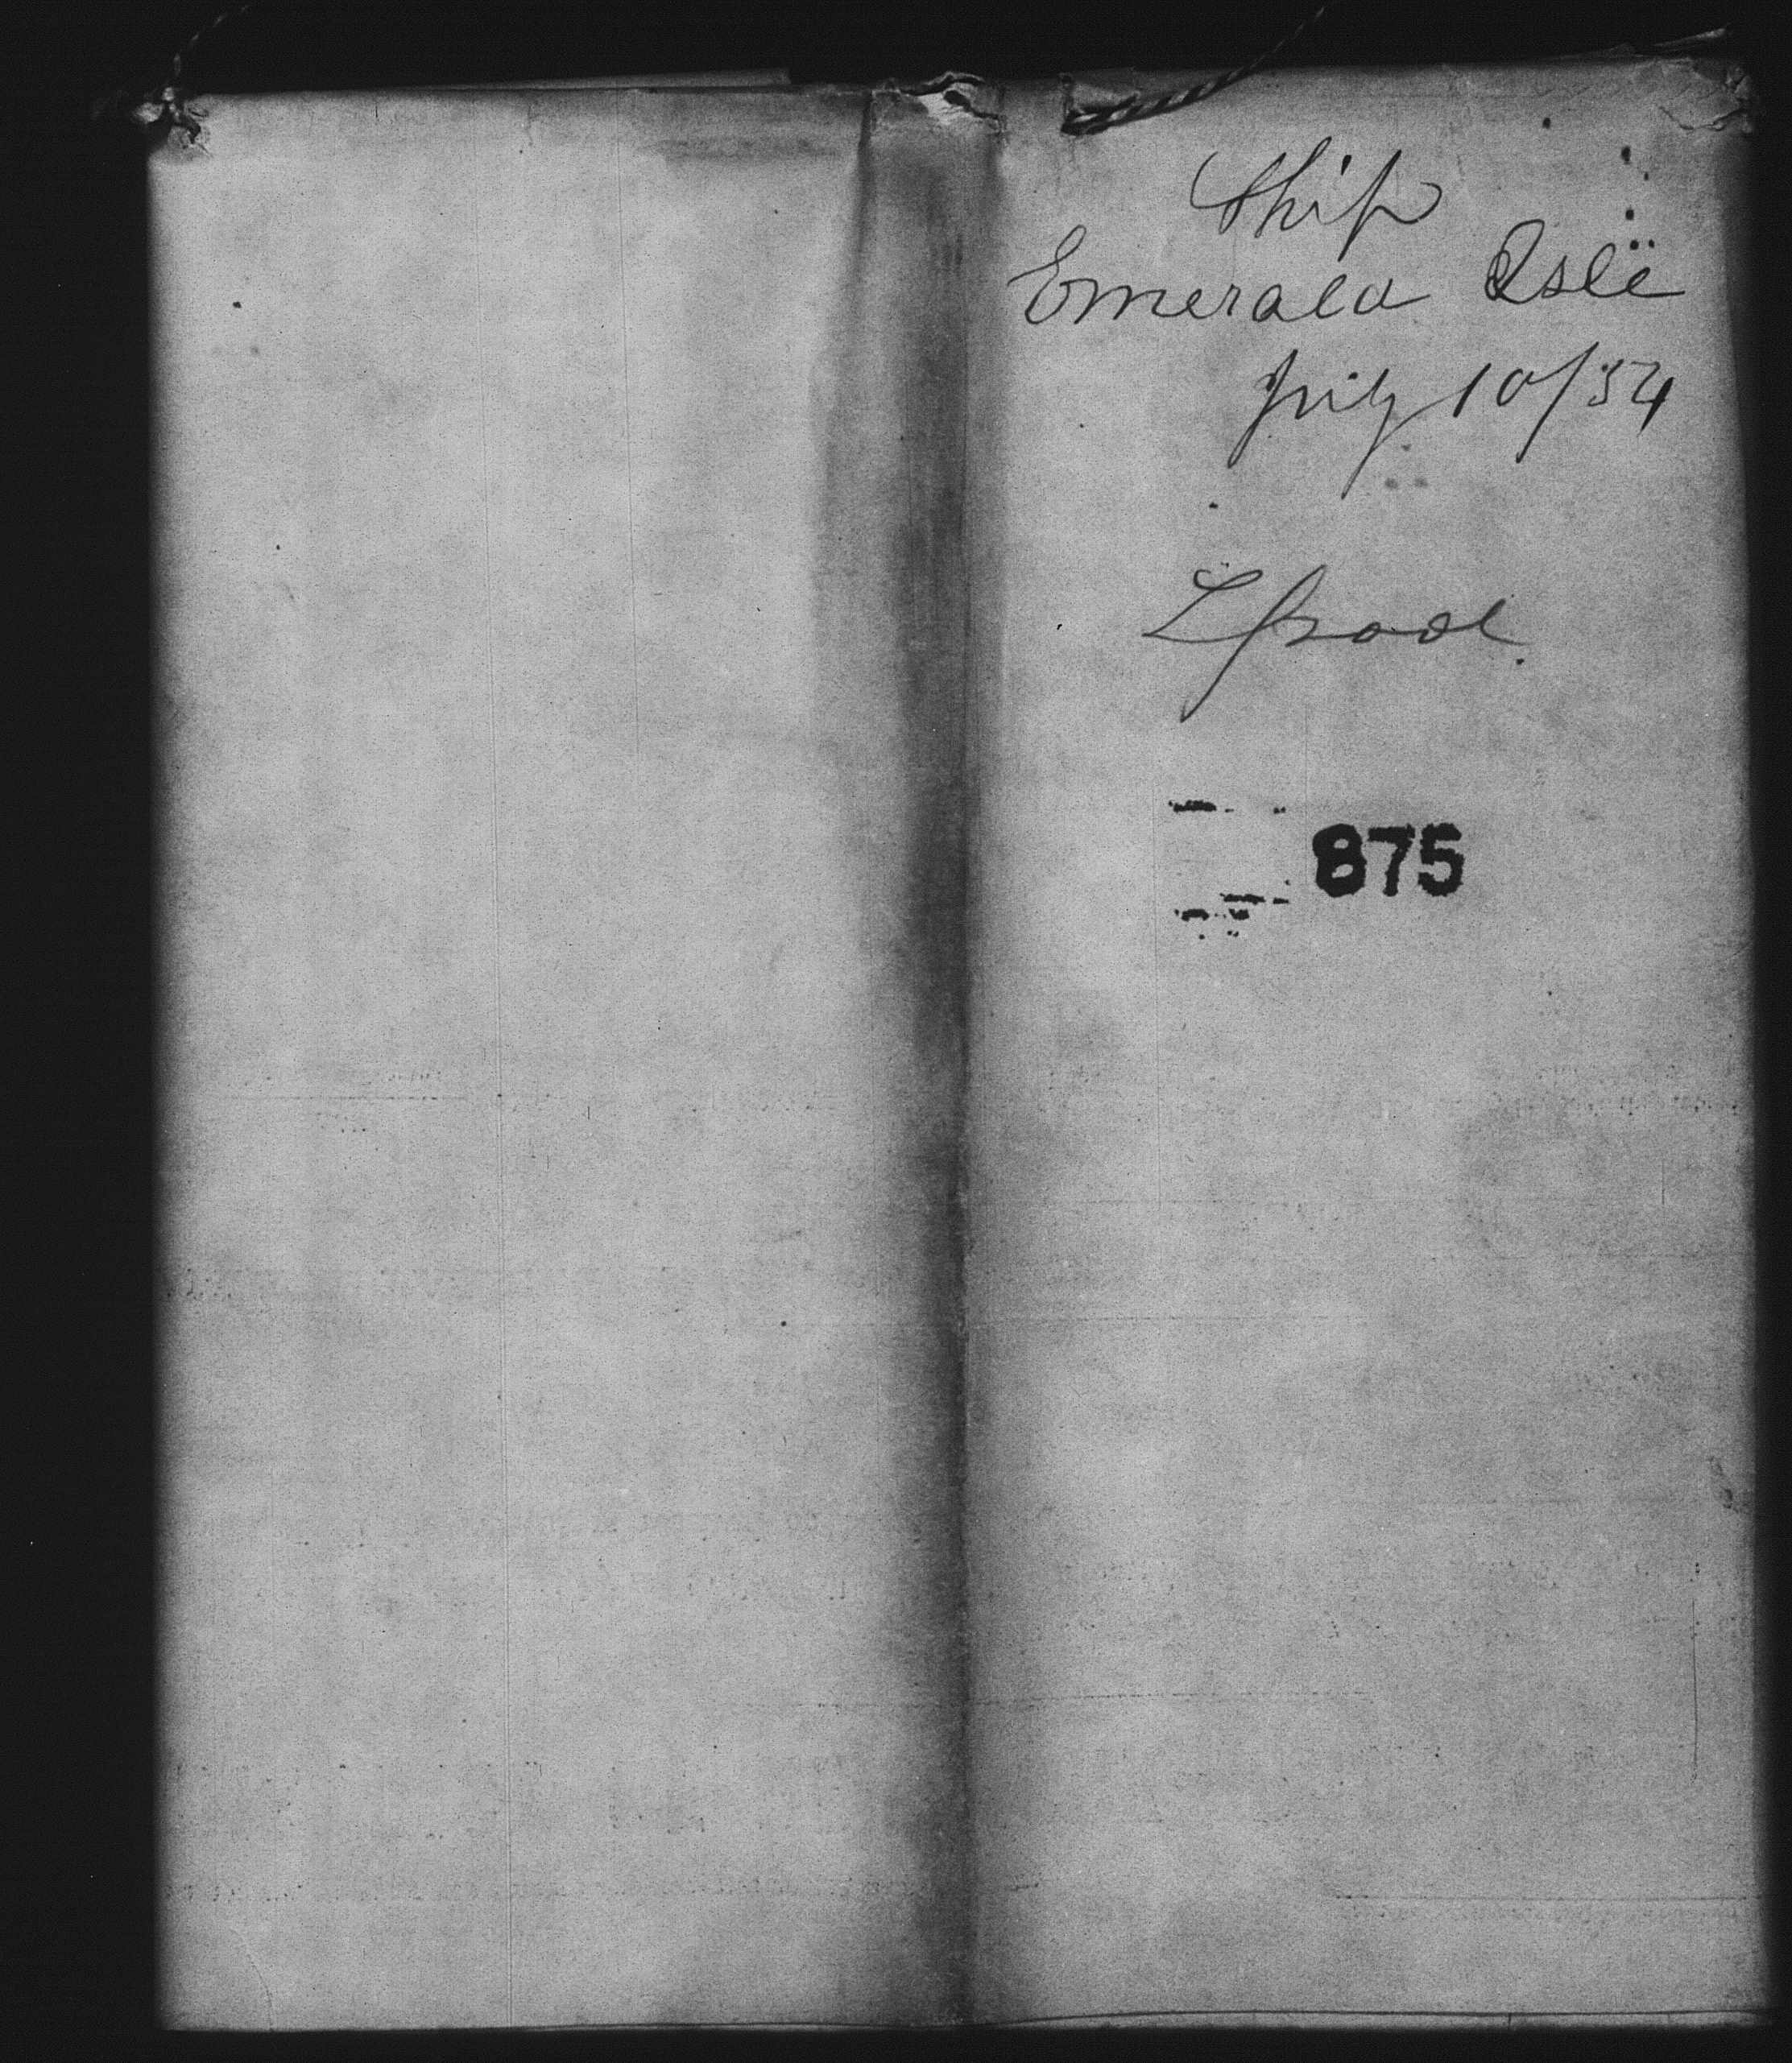 Ship
Emerald Isle
July 10/54
Lpool
875